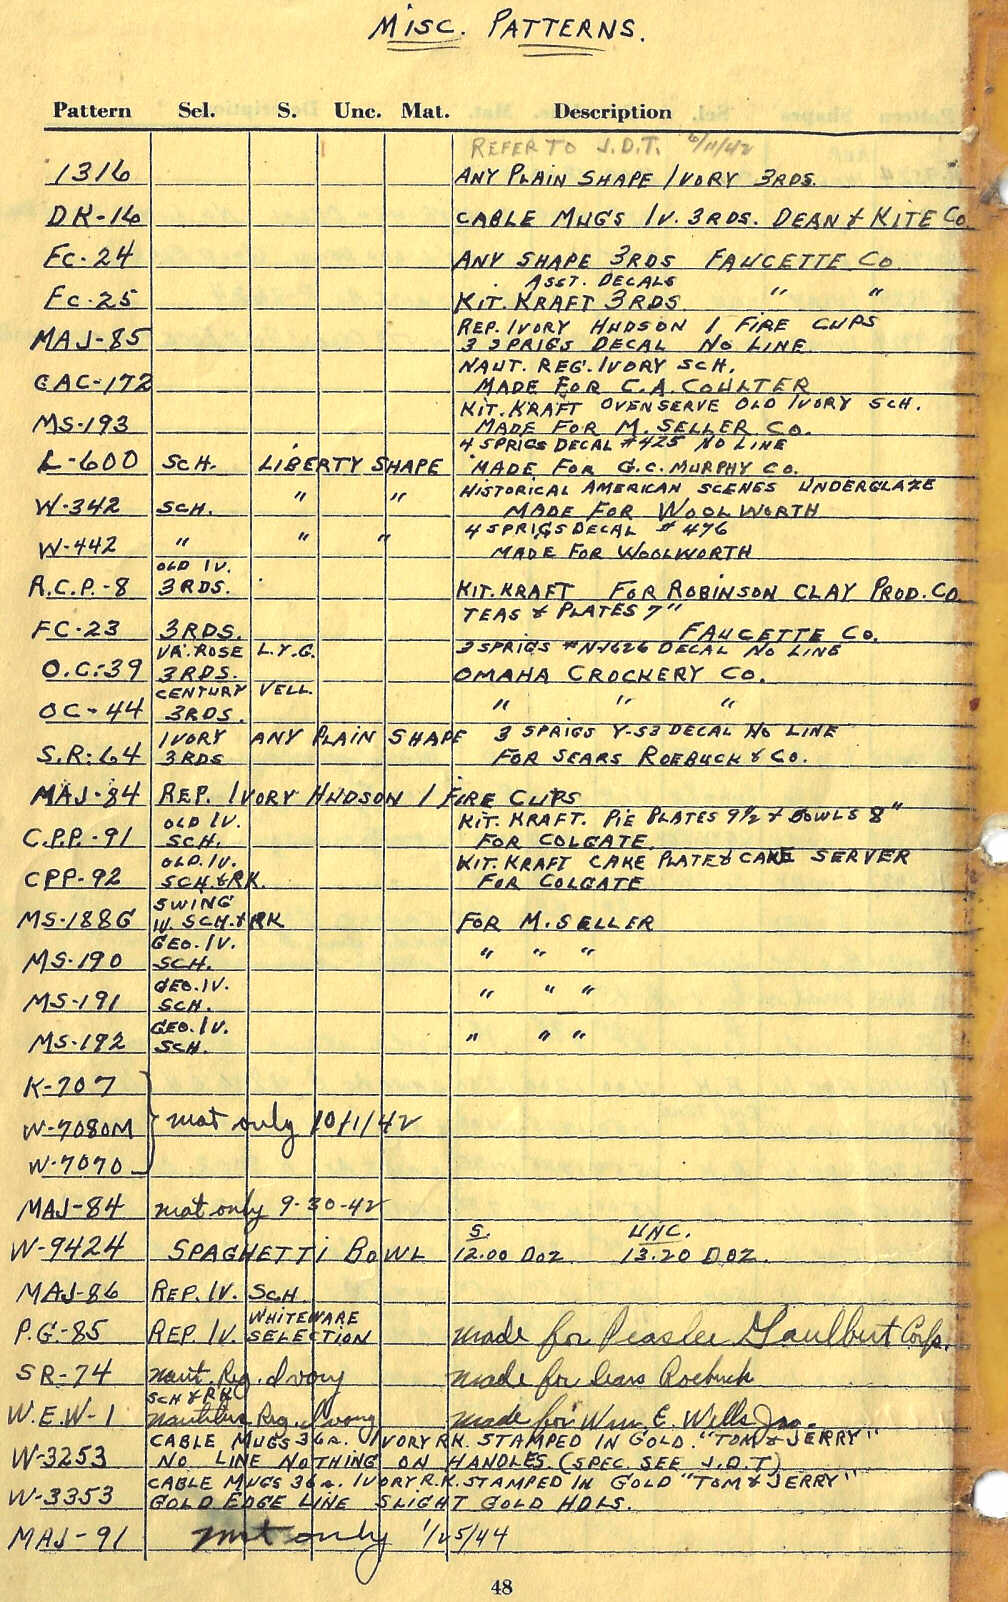 MISC. PATTERNS.
Pattern Sel. S. Unc. Mat. Description
REFER TO J.D.T. 6/11/42
1316 ANY PLAIN SHAPE IVORY 3RDS.
DK-16 CABLE MUGS IV. 3RDS. DEAN & KITE CO.
FC-24 ANY SHAPE 3RDS FAUCETTE CO.
ASST. DECALS
FC-25 KIT. KRAFT 3RDS. " "
REP. IVORY HUDSON 1 FIRE CUPS
MAJ-85 3 SPRIGS DECAL NO LINE
NAUT. REG. IVORY SCH.
CAC-172 MADE FOR C.A. COULTER
KIT. KRAFT OVENSERVE OLD IVORY SCH.
MS-193 MADE FOR M. SELLER CO.
4 SPRIGS DECAL #425 NO LINE
L-600 SCH. LIBERTY SHAPE MADE FOR G.C. MURPHY CO.
HISTORICAL AMERICAN SCENES UNDERGLAZE
W-342 SCH. " " MADE FOR WOOLWORTH
4 SPRIGS DECAL #476
W-442 " " " MADE FOR WOOLWORTH
OLD IV.
R.C.P.-8 3RDS. KIT. KRAFT FOR ROBINSON CLAY PROD. CO.
TEAS & PLATES 7"
FC-23 3RDS. FAUCETTE CO.
VA. ROSE L.Y.G. 3 SPRIGS #NJ626 DECAL NO LINE
O.C.-39 3RDS. OMAHA CROCKERY CO.
CENTURY VELL.
OC-44 3RDS. " " "
IVORY ANY PLAIN SHAPE 3 SPRIGS Y-53 DECAL NO LINE
S.R.-64 3RDS FOR SEARS ROEBUCK & CO.
MAJ-84 REP. IVORY HUDSON 1 FIRE CUPS
OLD IV. KIT. KRAFT. PIE PLATES 9 1/2 & BOWLS 8"
C.P.P.-91 SCH. FOR COLGATE
OLD. IV. KIT. KRAFT CAKE PLATE & CAKE SERVER
CPP-92 SCH. & RK. FOR COLGATE
SWING
MS-188G IV. SCH. & RK FOR M. SELLER
GEO. IV.
MS-190 SCH. " " "
GEO. IV.
MS-191 SCH. " " "
GEO. IV.
MS-192 SCH. " " "
K-707
W-7080M mat only 10/1/42
W-7070
MAJ-84 mat only 9-30-42
S. UNC.
W-9424 SPAGHETTI BOWL 12.00 DOZ 13.20 DOZ.
MAJ-86 REP. IV. SCH.
WHITEWARE
P.G.-85 REP. IV. SELECTION made for Peaslee Gaulbert Corp.
SR-74 naut. Reg. Ivory made for Sears Roebuck
SCH & RK
W.E.W-1 nautilus Reg. Ivory made for Wm. E. Wells Jr.
CABLE MUGS 36s. IVORY RK. STAMPED IN GOLD. "TOM & JERRY"
W-3253 NO LINE NOTHING ON HANDLES. (SPEC. SEE J.D.T)
CABLE MUGS 36s. IVORY R.K. STAMPED IN GOLD "TOM & JERRY"
W-3353 GOLD EDGE LINE SLIGHT GOLD HDLS.
MAJ-91 mat only 1/25/44
48